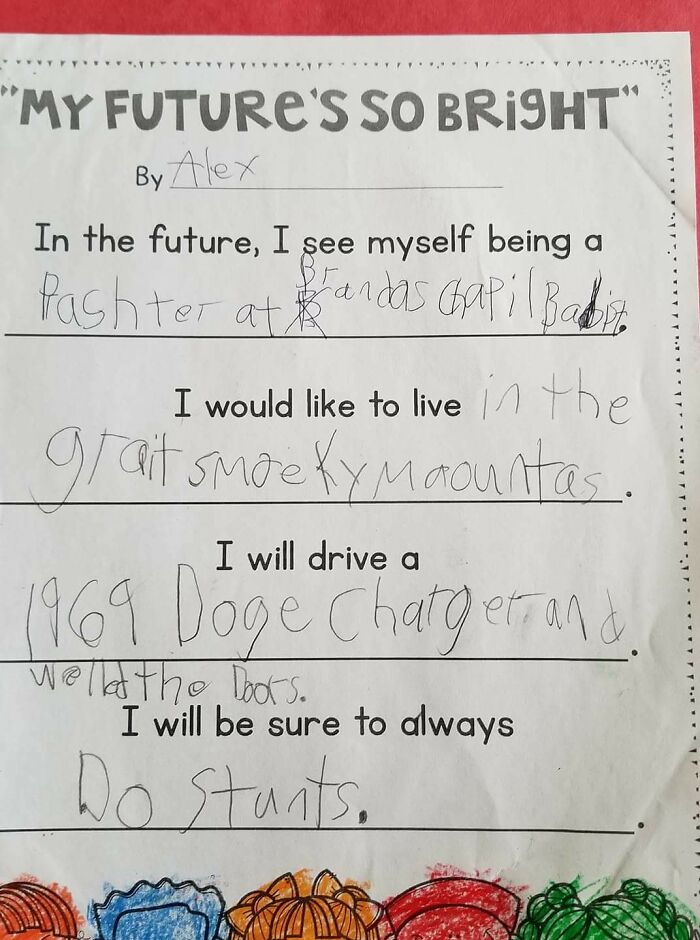 "MY FUTURE'S SO BRIGHT"
By Alex
In the future, I see myself being a
Pashter at Brandas Chapil Babist.
I would like to live in the
grait smoeky maountas.
I will drive a
1969 Doge Charger and
welled the Doors.
I will be sure to always
Do Stunts.